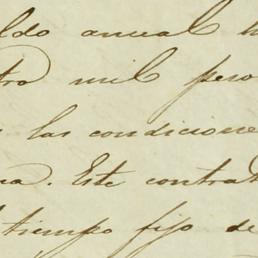 ldo anual h
tro mil peso
las condicione
na. Este contrat
tiempo fijo de